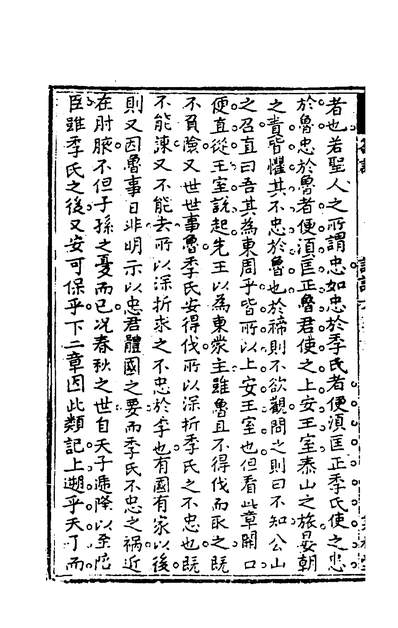 者也若聖人之所謂忠如忠於季氏者便須匡正季氏使之忠
於魯忠於魯者便須匡正魯君使之上安王室泰山之旅晏朝
之責皆懼其不忠於魯也於禘則不欲觀問之則曰不知公山
之召直曰吾其為東周乎皆所以上安王室也但看此章開口
便直從王室說起先王以為東蒙主雖魯且不得伐而取之既
不負險又世世事魯季氏安得伐所以深折季氏之不忠也既
不能諫又不能去所以深折求之不忠於李也有國有家以後
則又因魯事日非明示以忠君體國之要而季氏不忠之禍近
在肘腋不但子孫之憂而已况春秋之世自天子遞降以至陪
臣雖季氏之後又安可保乎下二章因此類記上遡乎天子而